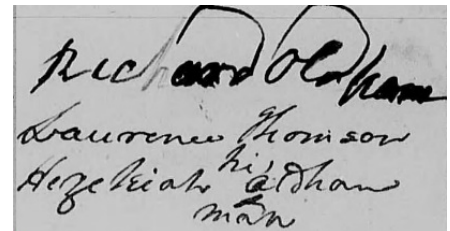 Richard Oldham
Laurence Thomson
his
Hezekiah Oldham
mark